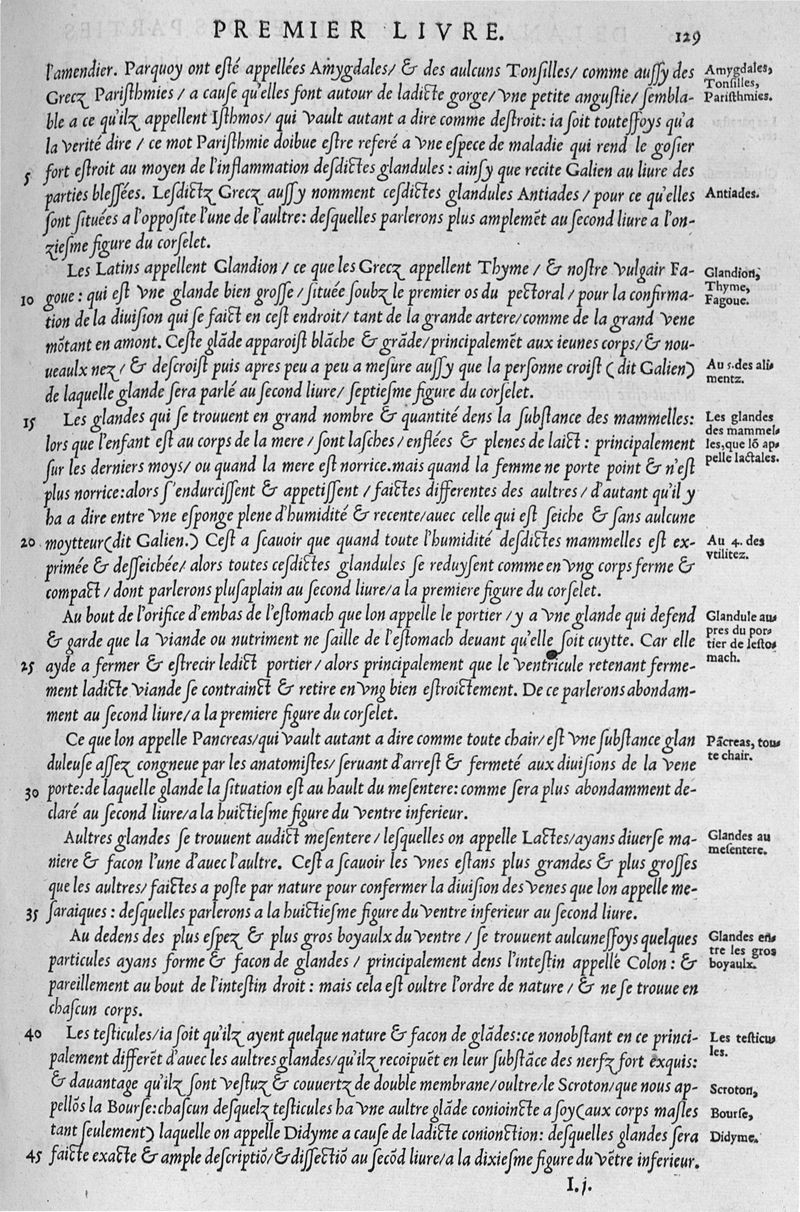 PREMIER LIVRE.
129
l'amendier. Parquoy ont eſté appellées Amygdales/ & des aulcuns Tonſilles/ comme auſſy des
Grecz Pariſthmies / a cauſe qu'elles font autour de ladicte gorge/ vne petite anguſtie/ ſembla-
ble a ce qu'ilz appellent Iſthmos/ qui vault autant a dire comme deſtroit: ia ſoit touteſſoys qu'a
la verité dire / ce mot Pariſthmie doibue eſtre referé a vne eſpece de maladie qui rend le goſier
5 fort eſtroit au moyen de l'inflammation deſdictes glandules : ainſy que recite Galien au liure des
parties bleſſées. Leſdictz Grecz auſſy nomment ceſdictes glandules Antiades / pour ce qu'elles
ſont ſituées a l'oppoſite l'une de l'aultre: deſquelles parlerons plus amplemẽt au ſecond liure a l'on-
zieſme figure du corſelet.
Les Latins appellent Glandion / ce que les Grecz appellent Thyme / & noſtre vulgair Fa-
10 goue : qui eſt vne glande bien groſſe / ſituée ſoubz le premier os du pectoral / pour la confirma-
tion de la diuiſion qui ſe faict en ceſt endroit/ tant de la grande artere/ comme de la grand vene
mõtant en amont. Ceſte glãde apparoiſt blãche & grãde/ principalemẽt aux ieunes corps/ & nou-
ueaulx nez/ & deſcroiſt puis apres peu a peu a meſure auſſy que la perſonne croiſt ( dit Galien)
de laquelle glande ſera parlé au ſecond liure/ ſeptieſme figure du corſelet.
15 Les glandes qui ſe trouuent en grand nombre & quantité dens la ſubſtance des mammelles:
lors que l'enfant eſt au corps de la mere / ſont laſches / enflées & plenes de laict : principalement
ſur les derniers moys/ ou quand la mere eſt norrice. mais quand la femme ne porte point & n'eſt
plus norrice: alors ſ'endurciſſent & appetiſſent / faictes differentes des aultres / d'autant qu'il y
ha a dire entre vne eſponge plene d'humidité & recente/ auec celle qui eſt ſeiche & ſans aulcune
20 moytteur (dit Galien.) Ceſt a ſcauoir que quand toute l'humidité deſdictes mammelles eſt ex-
primée & deſſeichée/ alors toutes ceſdictes glandules ſe reduyſent comme en vng corps ferme &
compact / dont parlerons pluſaplain au ſecond liure/ a la premiere figure du corſelet.
Au bout de l'orifice d'embas de l'eſtomach que lon appelle le portier / y a vne glande qui defend
& garde que la viande ou nutriment ne ſaille de l'eſtomach deuant qu'elle ſoit cuytte. Car elle
25 ayde a fermer & eſtrecir ledict portier / alors principalement que le ventricule retenant ferme-
ment ladicte viande ſe contrainct & retire en vng bien eſtroictement. De ce parlerons abondam-
ment au ſecond liure/ a la premiere figure du corſelet.
Ce que lon appelle Pancreas/ qui vault autant a dire comme toute chair/ eſt vne ſubſtance glan
duleuſe aſſez congneue par les anatomiſtes/ ſeruant d'arreſt & fermeté aux diuiſions de la vene
30 porte: de laquelle glande la ſituation eſt au hault du meſentere: comme ſera plus abondamment de-
claré au ſecond liure/ a la huictieſme figure du ventre inferieur.
Aultres glandes ſe trouuent audict meſentere / leſquelles on appelle Lactes/ ayans diuerſe ma-
niere & facon l'une d'auec l'aultre. Ceſt a ſcauoir les vnes eſtans plus grandes & plus groſſes
que les aultres/ faictes a poſte par nature pour confermer la diuiſion des venes que lon appelle me-
35 ſaraiques : deſquelles parlerons a la huictieſme figure du ventre inferieur au ſecond liure.
Au dedens des plus eſpez & plus gros boyaulx du ventre / ſe trouuent aulcuneſſoys quelques
particules ayans forme & facon de glandes / principalement dens l'inteſtin appellé Colon : &
pareillement au bout de l'inteſtin droit : mais cela eſt oultre l'ordre de nature / & ne ſe trouue en
chaſcun corps.
40 Les teſticules/ ia ſoit qu'ilz ayent quelque nature & facon de glãdes: ce nonobſtant en ce princi-
palement differẽt d'auec les aultres glandes/ qu'ilz recoipuẽt en leur ſubſtãce des nerfz fort exquis:
& dauantage qu'ilz ſont veſtuz & couuertz de double membrane/ oultre/ le Scroton/ que nous ap-
pellõs la Bourſe: chaſcun deſquelz teſticules ha vne aultre glãde conioincte a ſoy (aux corps maſles
tant ſeulement) laquelle on appelle Didyme a cauſe de ladicte conionction: deſquelles glandes ſera
45 faicte exacte & ample deſcriptiõ/ & diſſectiõ au ſecõd liure/ a la dixieſme figure du vẽtre inferieur.
I.j.
Amygdales,
Tonſilles,
Pariſthmies.
Antiades.
Glandion,
Thyme,
Fagoue.
Au 5. des ali-
mentz.
Les glandes
des mammel-
les, que lõ ap-
pelle lactales.
Au 4. des
vtilitez.
Glandule au-
pres du por-
tier de leſto-
mach.
Pãcreas, tou-
te chair.
Glandes au
meſentere.
Glandes en-
tre les gros
boyaulx.
Les teſticu-
les.
Scroton,
Bourſe,
Didyme.